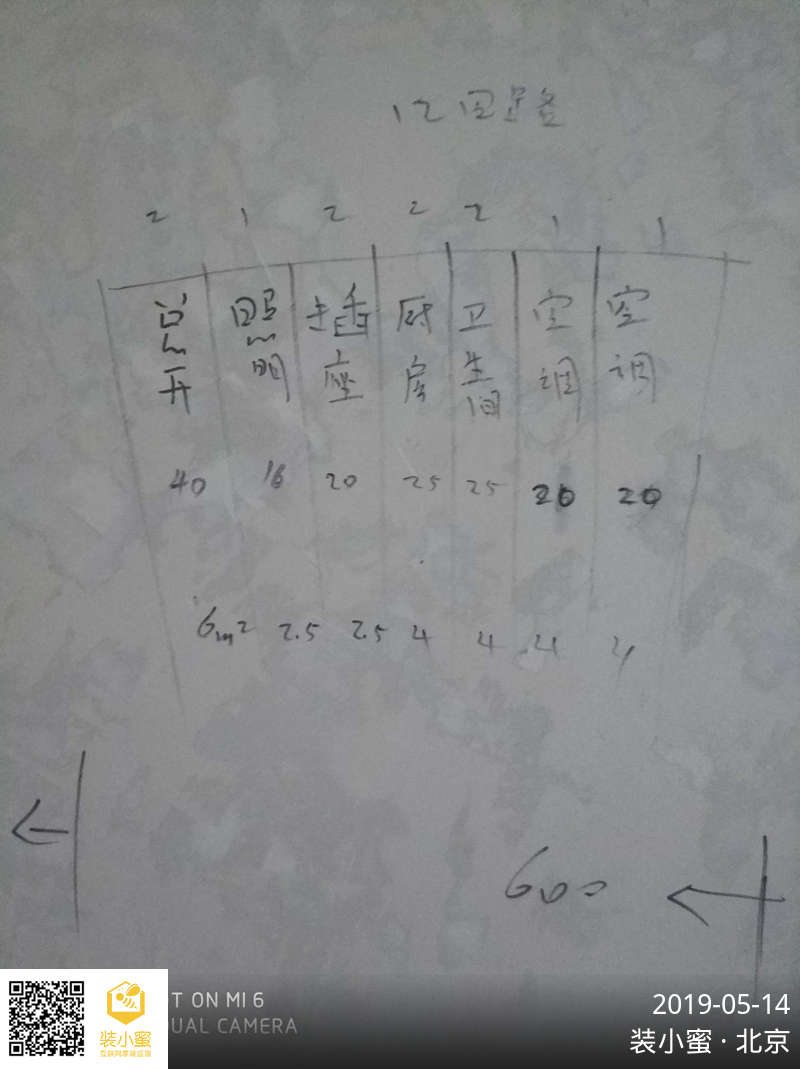 12回路
2 1 2 2 2 1 1
总开 照明 插座 厨房 卫生间 空调 空调
40 16 20 25 25 20 20
6m2 2.5 2.5 4 4 4 4
600
装小蜜
互联网家装监理
T ON MI 6
UAL CAMERA
2019-05-14
装小蜜·北京